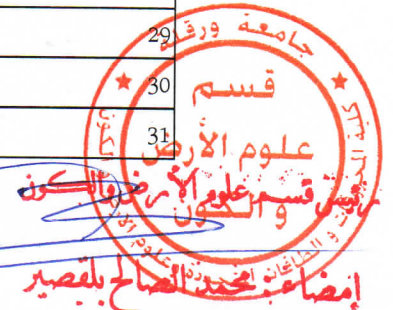 29
30
31
جامعة ورقلة
قسم
علوم الأرض
والكون
رئيس قسم علوم الأرض والكون
إمضاء: محمد الصالح بلقصير